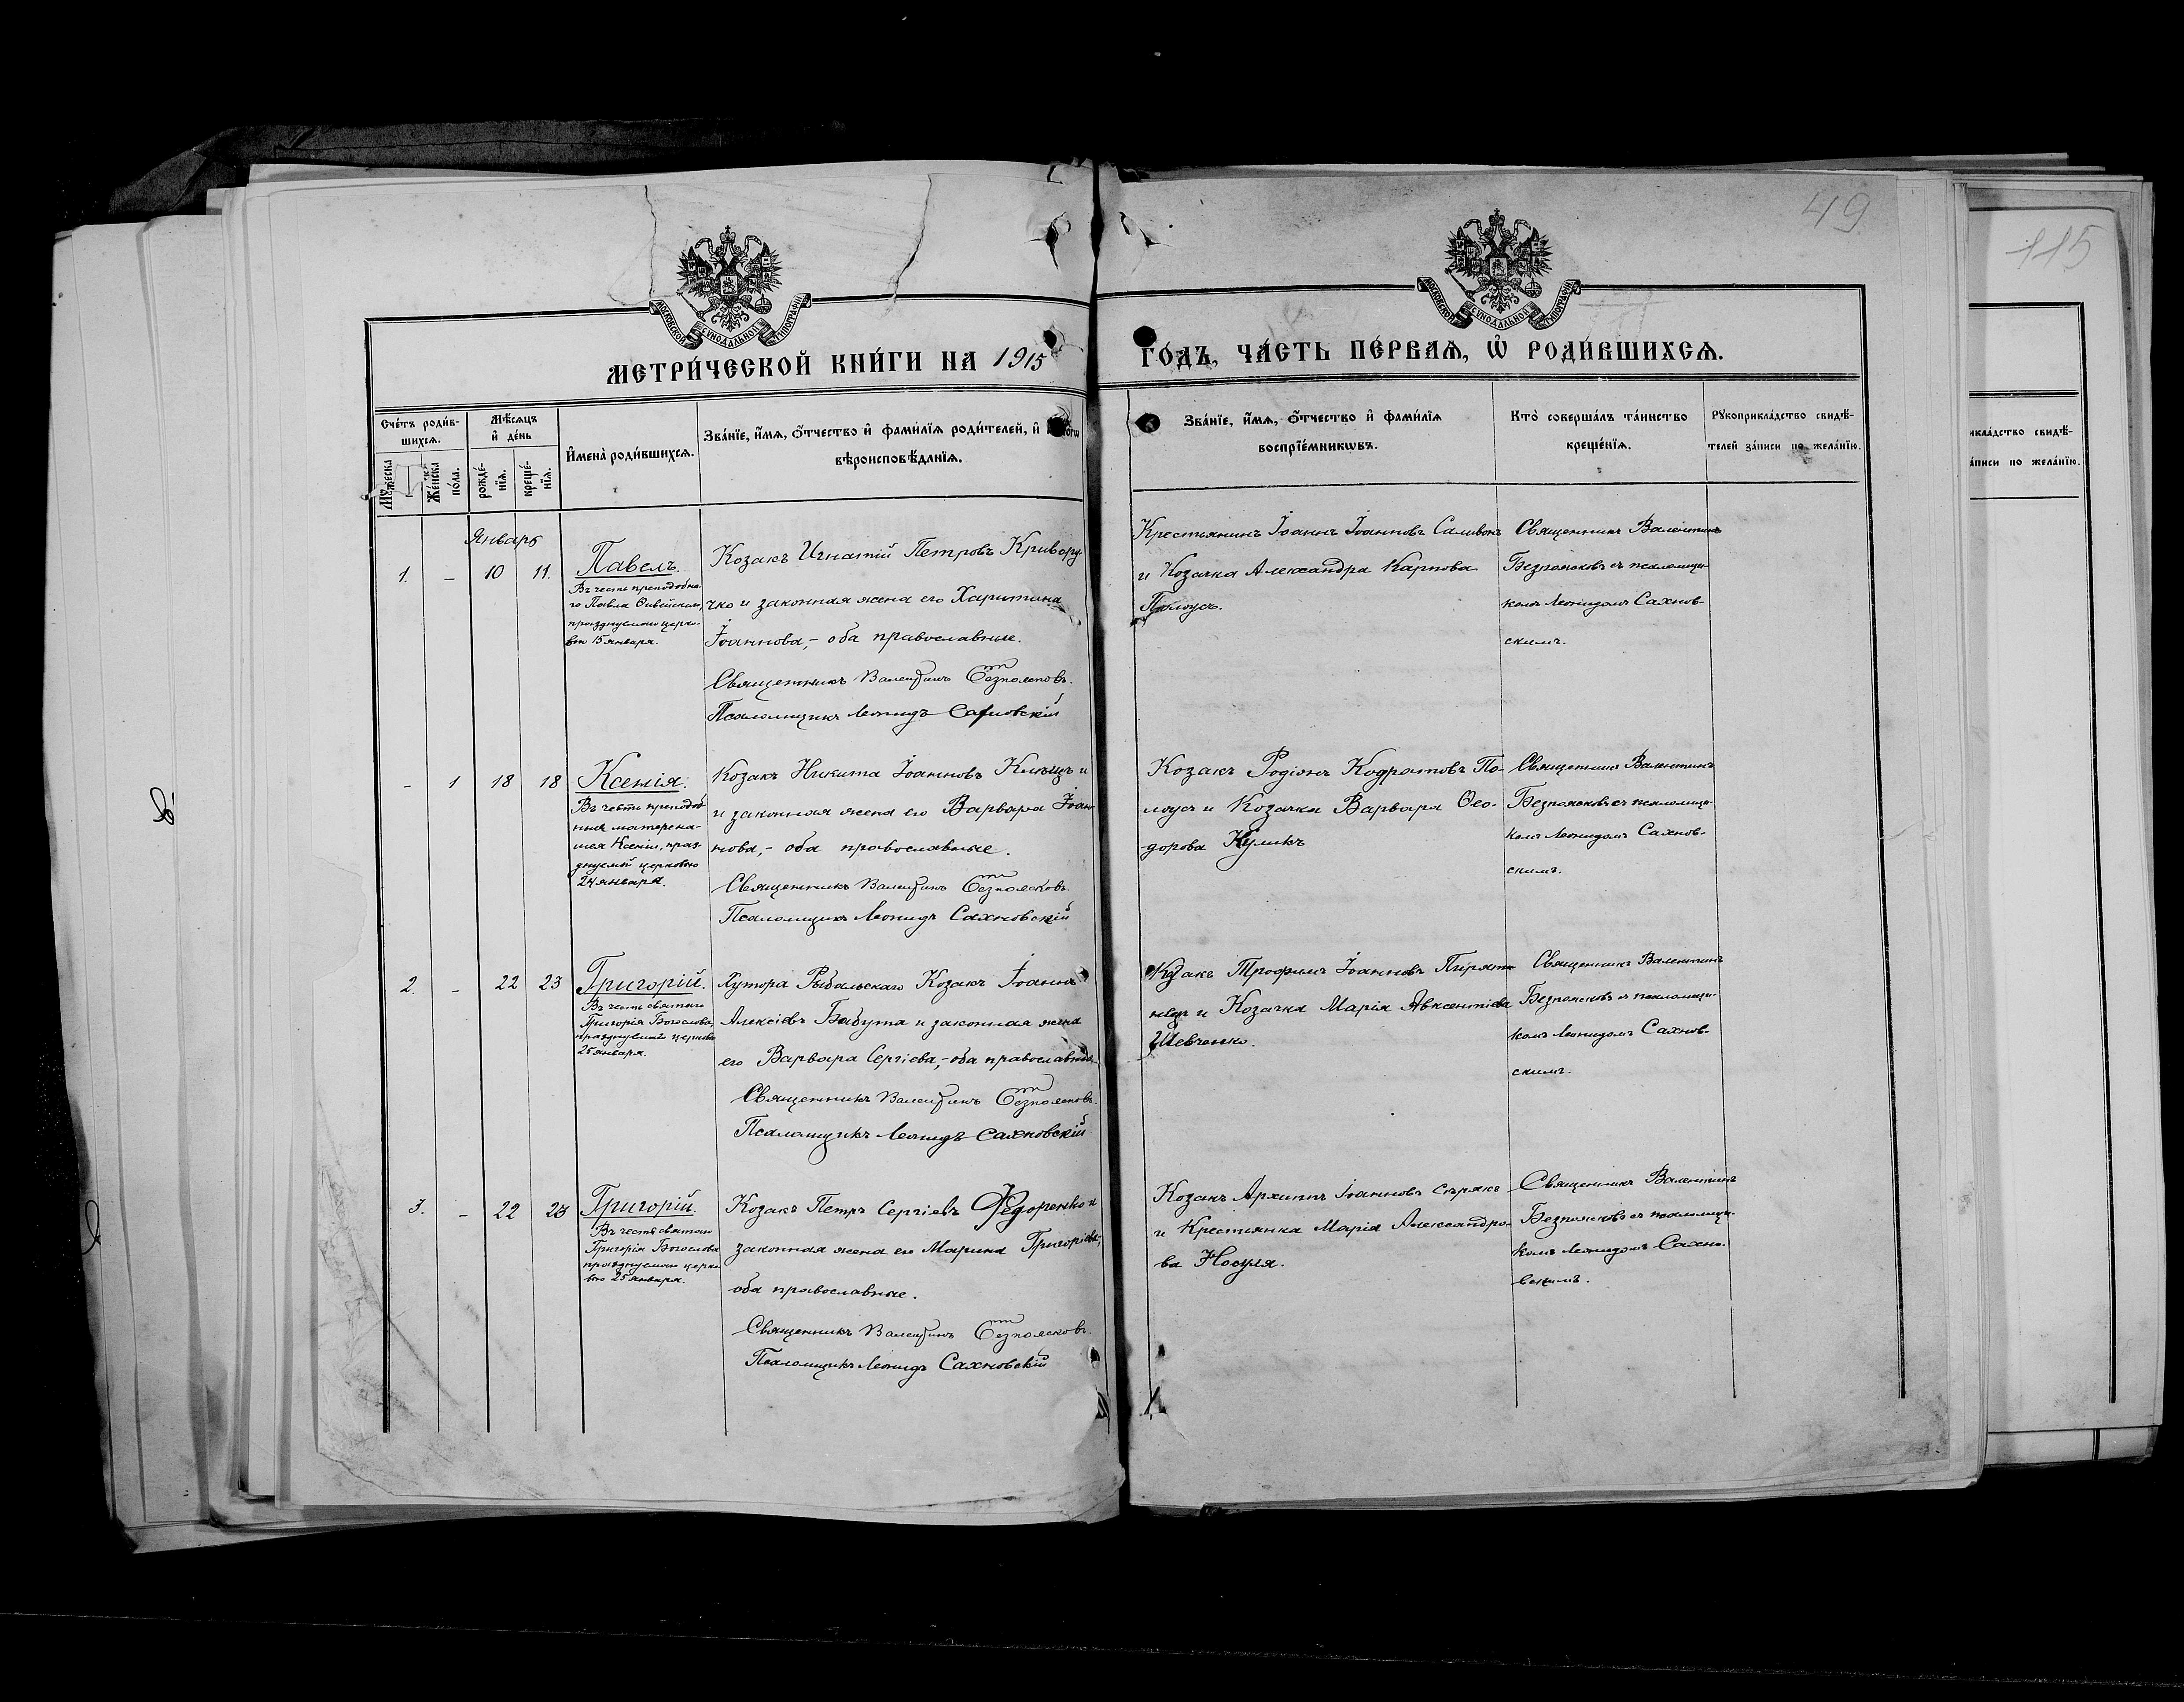 49
115
МОСКОВСКОЙ СѴНОДАЛЬНОЙ ТИПОГРАФІИ
МОСКОВСКОЙ СѴНОДАЛЬНОЙ ТИПОГРАФІИ
МЕТРИ́ЧЕСКОЙ КНИ́ГИ НА 1915
ГО́ДЪ, ЧА́СТЬ ПЕ́РВАѦ, Ѡ҆ РОДИ́ВШИХСѦ.
Сче́тъ роди́в-
шихсѧ.
Мѣ́сѧцъ
и҆ де́нь
Мꙋ́жеска
Же́нска
по́ла.
рожде́-
нїѧ.
креще́-
нїѧ.
И҆мена̀ роди́вшихсѧ.
Зва́нїе, и҆́мѧ, ѻ҆́тчество и҆ фами́лїѧ роди́телей, и҆
вѣроисповѣ́данїѧ.
Зва́нїе, и҆́мѧ, ѻ҆́тчество и҆ фами́лїѧ
воспрїе́мникѡвъ.
Кто̀ соверша́лъ та́инство
креще́нїѧ.
Рꙋкоприкла́дство свидѣ́-
телей за́писи по жела́нїю.
икла́дство свидѣ́-
а́писи по жела́нїю.
Январь
1. - 10 11.
Павелъ.
Въ честь преподобна-
го Павла Ѳивейскаго,
празднуемаго церко-
вью 15 января.
Козакъ Игнатій Петровъ Кривору-
чко и законная жена его Харитина
Іоаннова, - оба православные.
Священникъ Валентинъ Безпоясковъ.
Псаломщикъ Леонидъ Сахновскій
Крестьянинъ Іоаннъ Іоанновъ Саливонъ
и Козачка Александра Карпова
Полоусъ.
Священникъ Валентинъ
Безпоясковъ съ псаломщи-
комъ Леонидомъ Сахнов-
скимъ.
- 1 18 18
Ксенія.
Въ честь преподоб-
ныя матере на-
шея Ксеніи, праз-
днуемой церковью
24 января.
Козакъ Никита Іоанновъ и
и законная жена его Варвара Іоан-
нова, - оба православные.
Священникъ Валентинъ Безпоясковъ.
Псаломщикъ Леонидъ Сахновскій
Козакъ Родіонъ Кодратовъ По-
лоусъ и Козачка Варвара Ѳео-
дорова Куликъ
Священникъ Валентинъ
Безпоясковъ съ псаломщи-
комъ Леонидомъ Сахнов-
скимъ.
2. - 22 23
Григорій.
Въ честь святого
Григорія Богослова,
празднуемаго церковью
25 января.
Хутора Рыбальскаго Козакъ Іоаннъ
Алексіевъ Бабута и законная жена
его Варвара Сергіева, - оба православные.
Священникъ Валентинъ Безпоясковъ.
Псаломщикъ Леонидъ Сахновскій
Козакъ Трофимъ Іоанновъ Пирят-
нецъ и Козачка Марія Авксентіева
Шевченко.
Священникъ Валентинъ
Безпоясковъ съ псаломщи-
комъ Леонидомъ Сахнов-
скимъ.
3. - 22 23
Григорій.
Въ честь святого
Григорія Богослова
празднуемаго церко-
вью 25 января.
Козакъ Петръ Сергіевъ Федоренко и
законная жена его Марина Григоріева,
оба православные.
Священникъ Валентинъ Безпоясковъ.
Псаломщикъ Леонидъ Сахновскій
Козакъ Архиппъ Іоанновъ Сѣрякъ
и Крестьянка Марія Александро-
ва Носуля.
Священникъ Валентинъ
Безпоясковъ съ псаломщи-
комъ Леонидомъ Сахно-
вскимъ.